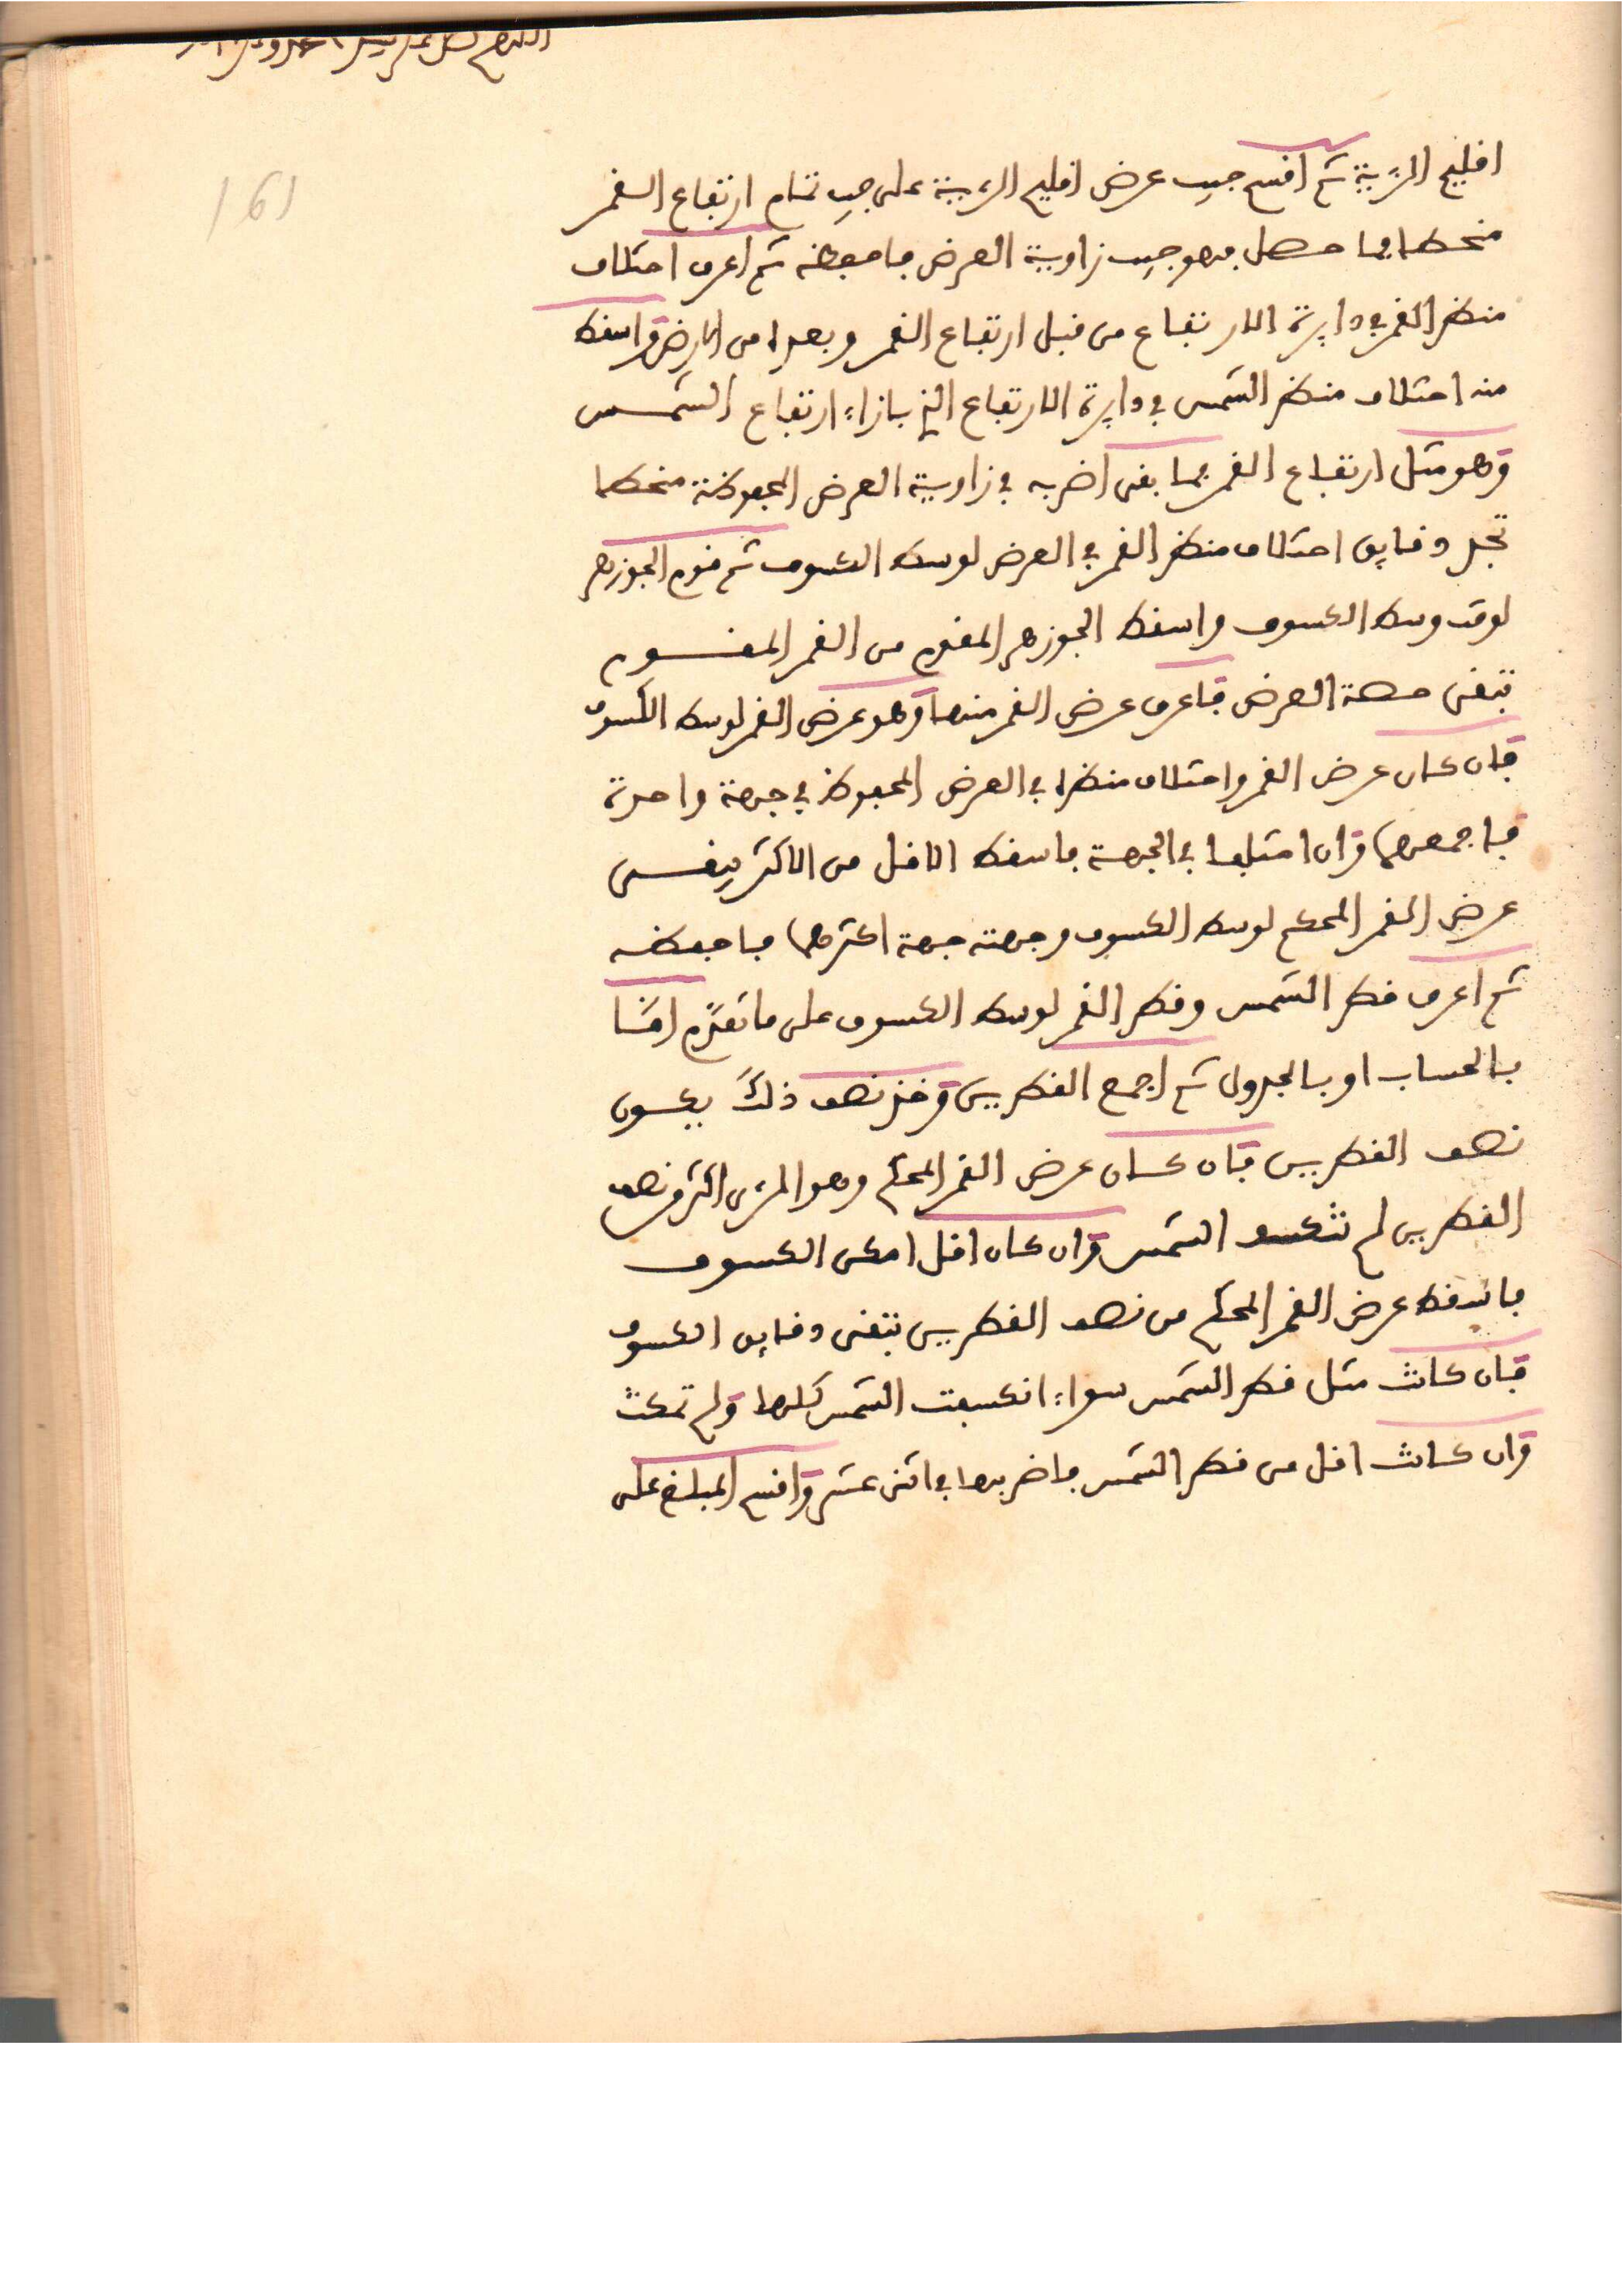 161
اقليم الرؤية ثم اقسم جيب عرض اقليم الرؤية على جيب تمام ارتفاع القمر
منحطا فما حصل فهو جيب زاوية العرض فاحفظه ثم اعرف اختلاف
منظر القمر في دايرة الارتفاع من قبل ارتفاع القمر وبعده من الارض واسقط
منه اختلاف منظر الشمس في دايرة الارتفاع الذي بازاء ارتفاع الشمس
وهو مثل ارتفاع القمر فما بقى اضربه في زاوية العرض المحفوظة منحطا
تجد دقايق اختلاف منظر القمر في العرض لوسط الكسوف ثم قوم الجوزهر
لوقت وسط الكسوف واسقط الجوزهر المقوم من القمر المقوم
تبقى حصة العرض فاعرف عرض القمر منها وهو عرض القمر لوسط الكسوف
فان كان عرض القمر واختلاف منظره في العرض المحفوظ في جهة واحدة
فاجمعهما وان اختلفا في الجهة فاسقط الاقل من الاكثر يبقى
عرض القمر المحكم لوسط الكسوف وجهته جهة اكثرهما فاحفظه
ثم اعرف قطر الشمس وقطر القمر لوسط الكسوف على ما تقدم اما
بالحساب او بالجدول ثم اجمع القطرين وخذ نصف ذلك يكون
نصف القطرين فان كان عرض القمر المحكم وهو المرءى اكثر من نصف
القطرين لم تنكسف الشمس وان كان اقل امكن الكسوف
فاسقط عرض القمر المحكم من نصف القطرين تبقى دقايق الكسوف
فان كانت مثل قطر الشمس سواء انكسفت الشمس كلها ولم تمكث
وان كانت اقل من قطر الشمس فاضربها في اثنى عشر واقسم المبلغ على